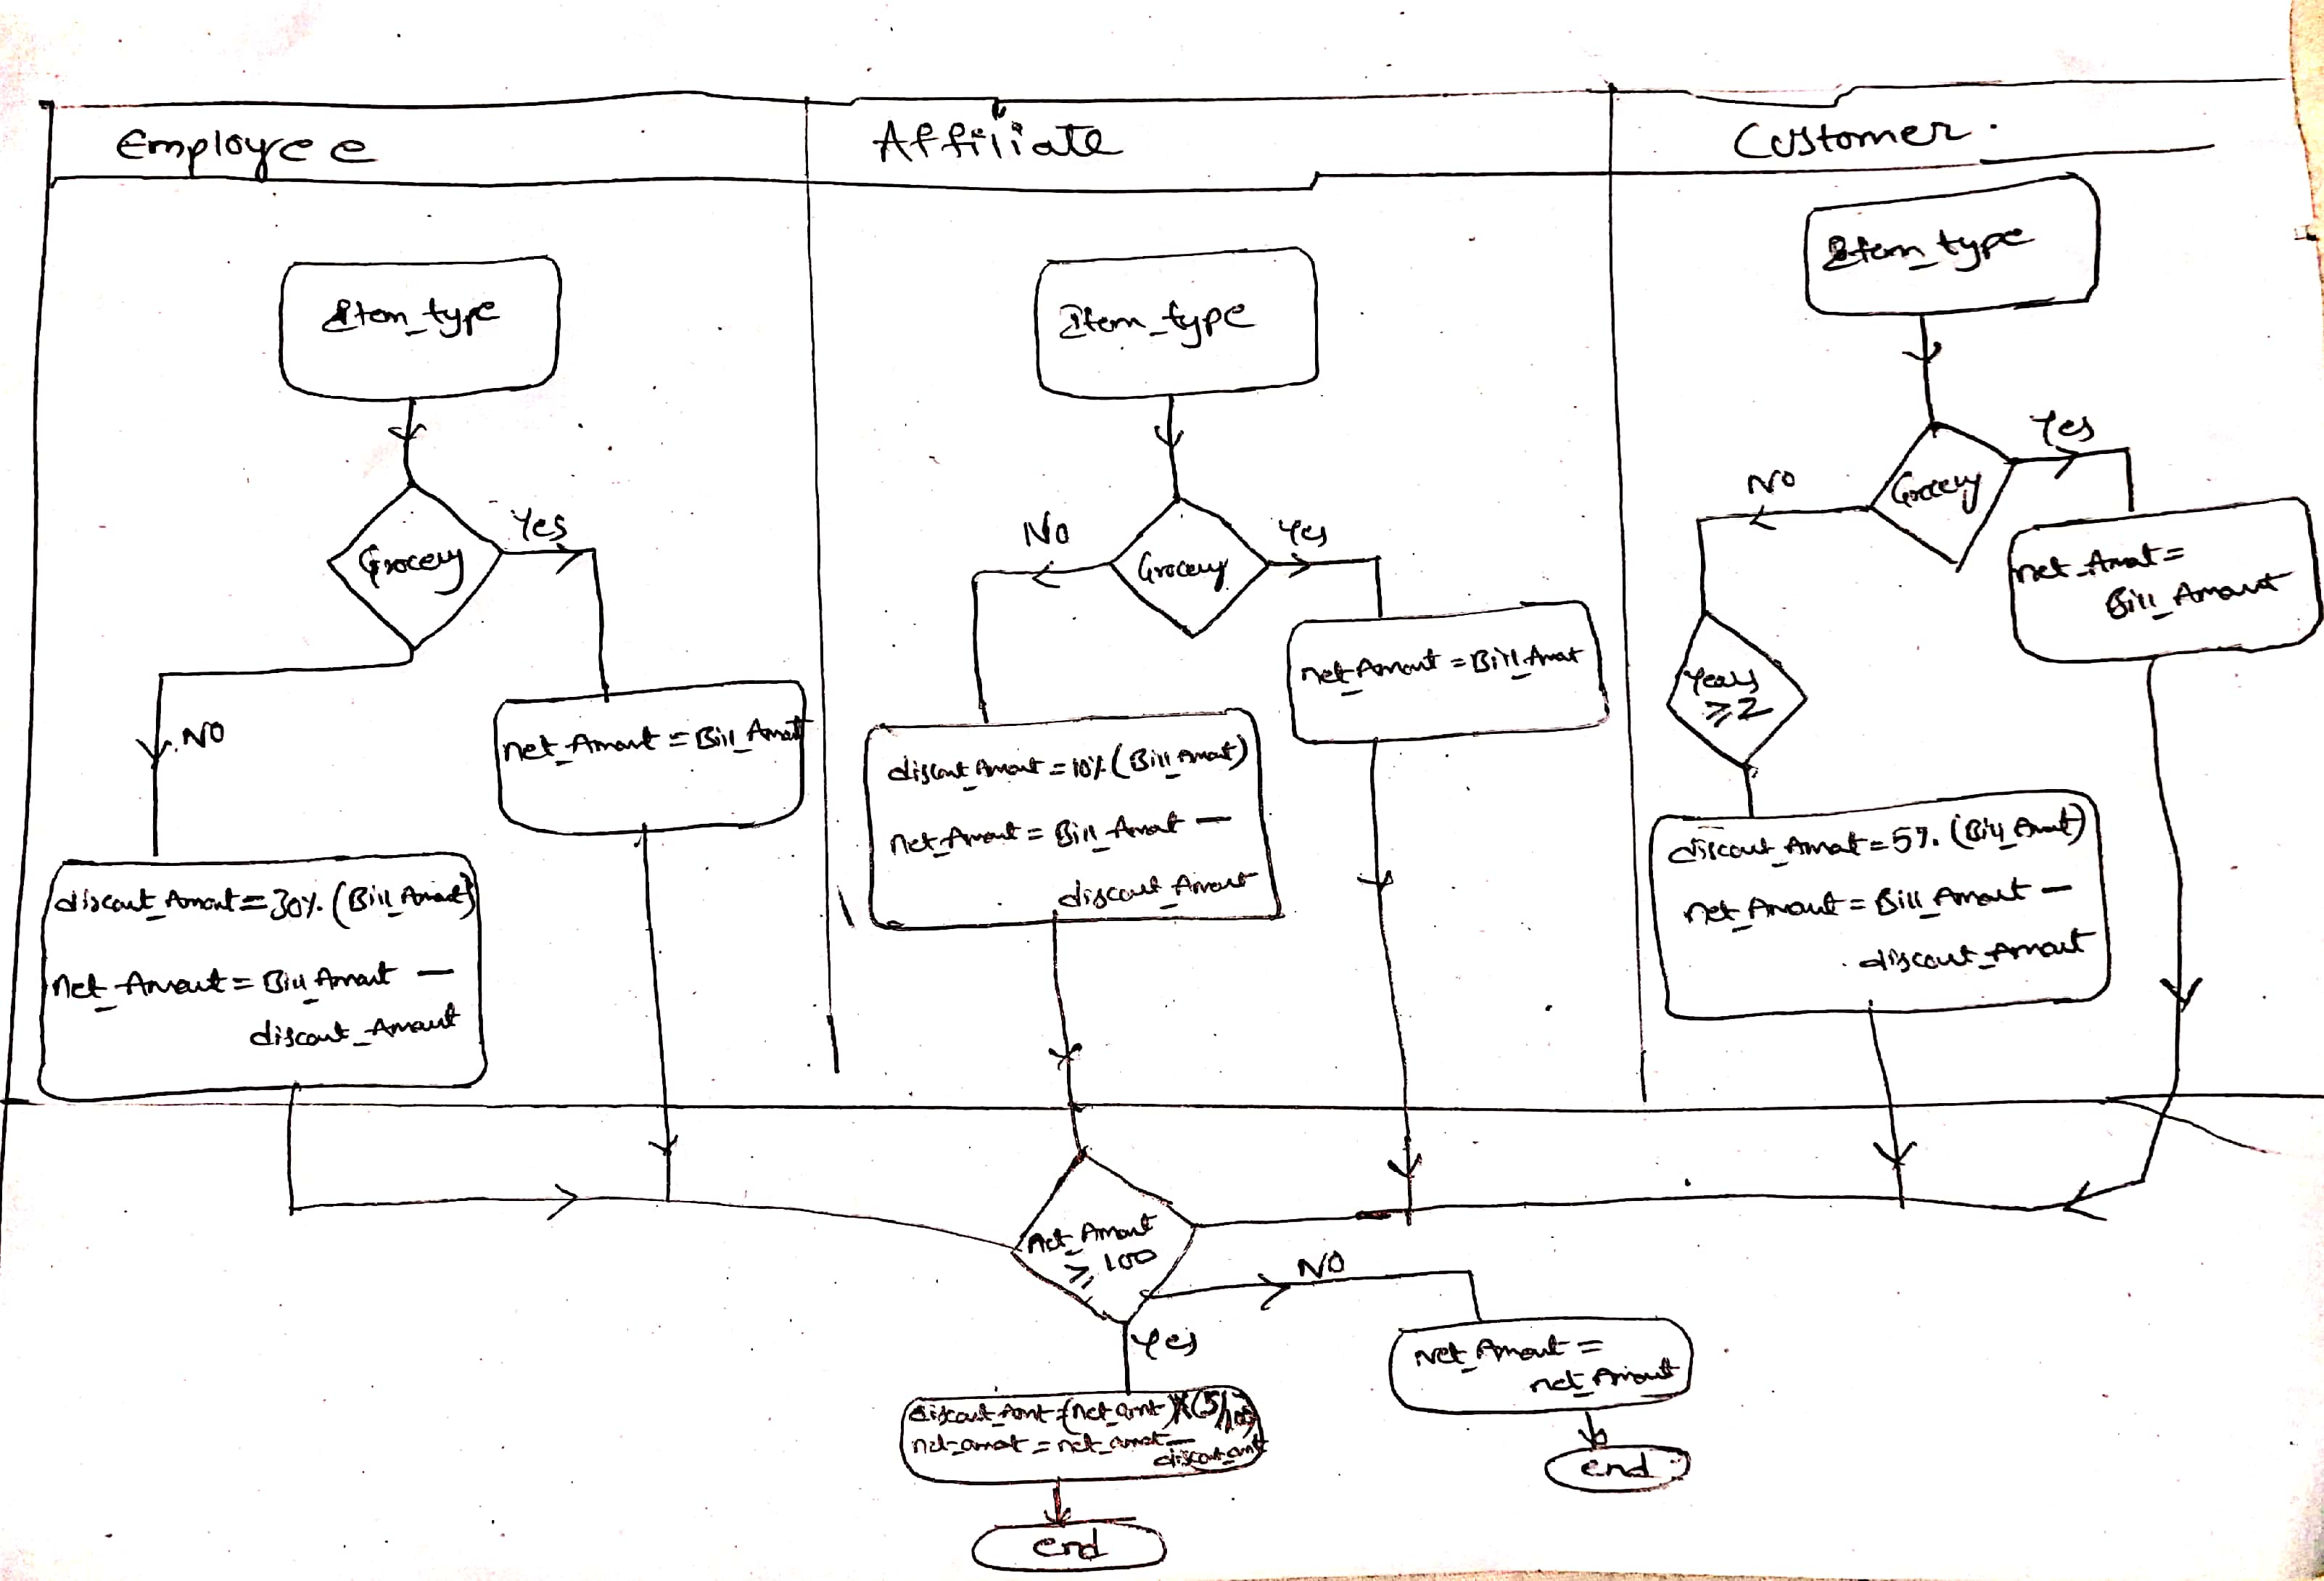 Employee
Affiliate
Customer.
Item_type
Item_type
Item_type
Grocery
Yes
NO
net_Amount = Bill_Amount
discount_Amount = 30% (Bill_Amount)
net_Amount = Bill_Amount —
discount_Amount
Grocery
NO
Yes
net_Amount = Bill_Amount
discount_Amount = 10% (Bill_Amount)
net_Amount = Bill_Amount —
discount_Amount
Grocery
Yes
NO
net_Amount =
Bill_Amount
Years
≥2
discount_Amount = 5% (Bill_Amount)
net_Amount = Bill_Amount —
discount_Amount
net_Amount
≥ 100
NO
Yes
net_Amount =
net_Amount
end
discount_Amnt = (net_amnt) X (5/100)
net_amount = net_amount —
discount_amnt
end